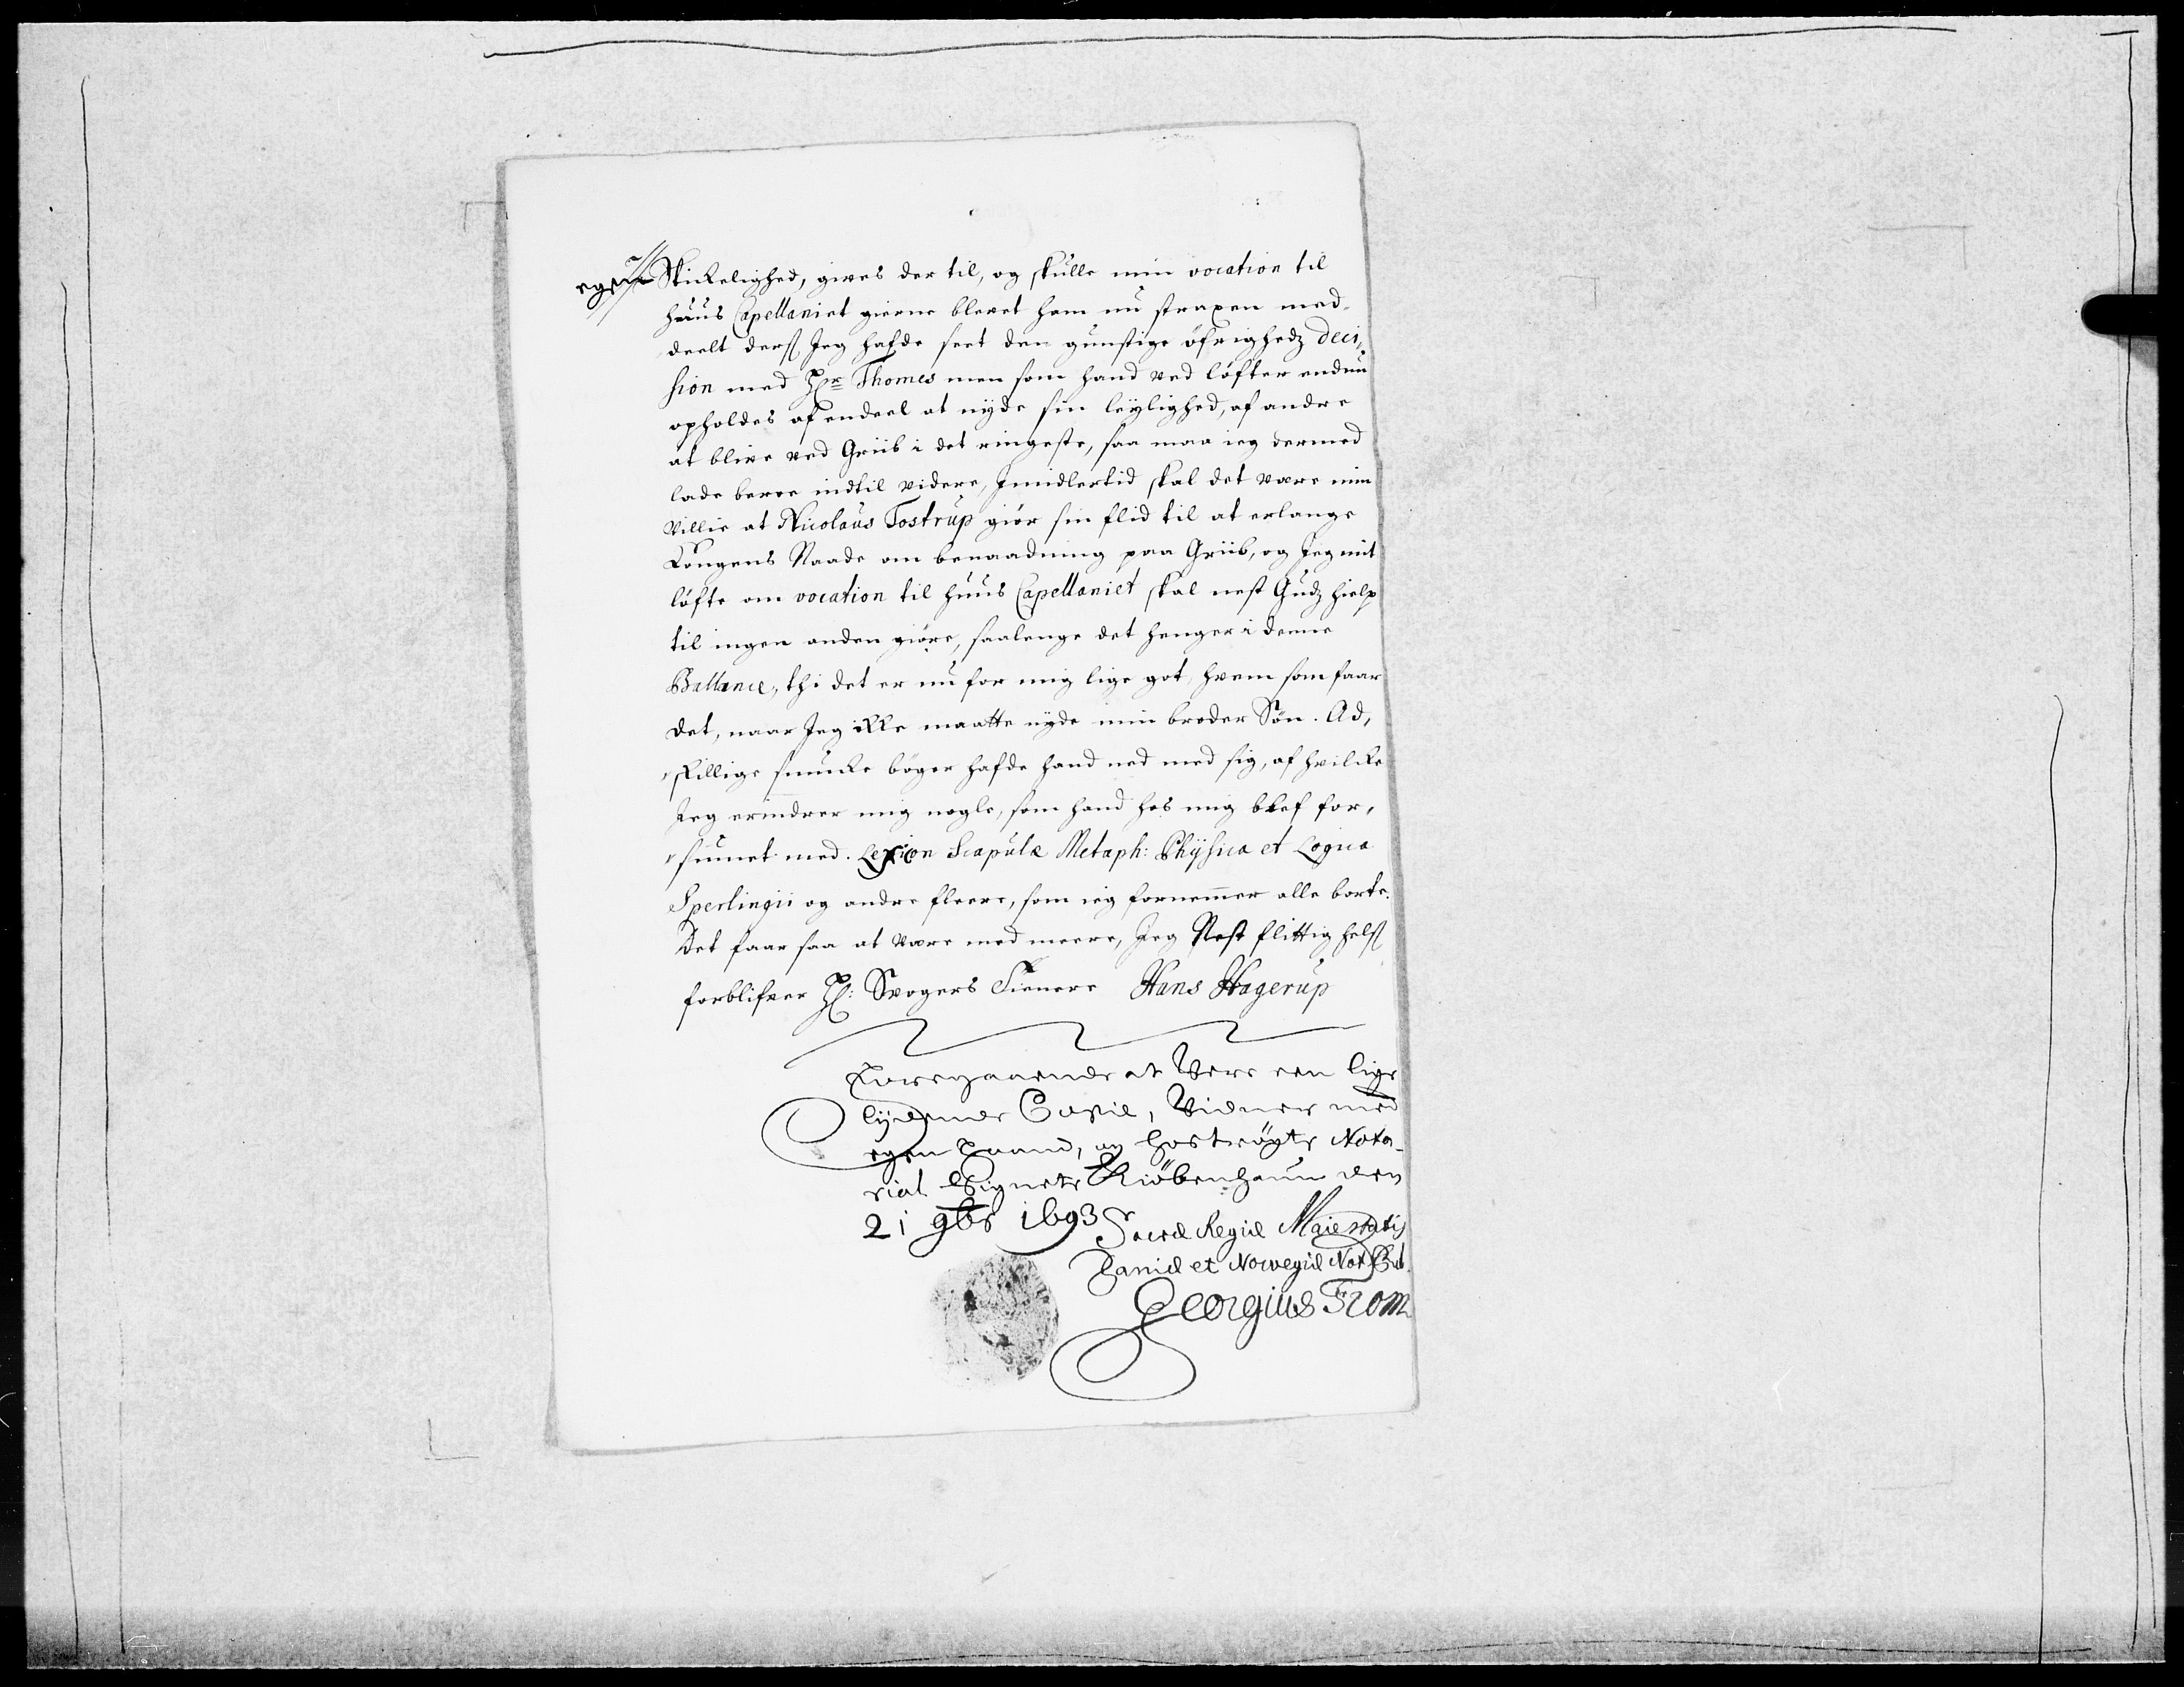 egen Skickelighed, gives der til, og skulle min vocation til
huus Capellaniet gierne blevet ham nu straxen med-
deelt ders Jeg hafde seet den gunstige öfrighedz deci-
sion med Hr Thomes men som hand ved löfter endnu
opholdes af endeel at nyde sin leylighed, af andre
at blive ved Griib i det ringeste, saa maa ieg dermed
lade beroe indtil videre, Jmidlertid skal det være min
Villie at Nicolaus Tostrup giör sin flid til at erlange
Kongens Naade om benaadning paa Griib, og Jeg mit
löfte om vocation til huus Capellaniet skal nest Gudz hielp
til ingen anden giöre, saalenge det henger i denne
Ballance, thi det er nu for mig lige got, hvem som faar
det, naar Jeg ikke maatte nyde min broder Sön. Ad,
skillige smucke böger hafde hand ned med sig, af hvilcke
Jeg erindrer mig nogle, som hand hos mig blef for,
siunet med. Lexicon Scapulæ Metaph: Physica et Logica
Sperlingii og andre fleere, som ieg fornemmer alle borte.
Det faar saa at være med meere, Jeg Nest flittig hels
forblifver H: Svogers Tienere Hans Hagerup
Foregaaende at Vere een lige
lydende Copie, Vidner med
egen Haand, og hoströgte Nota-
rial Signete Kiöbenhaun den
21 9br 1693
Sacræ Regiæ Maiestatis
Daniæ et Norvegiæ Not Pub.
Georgius From